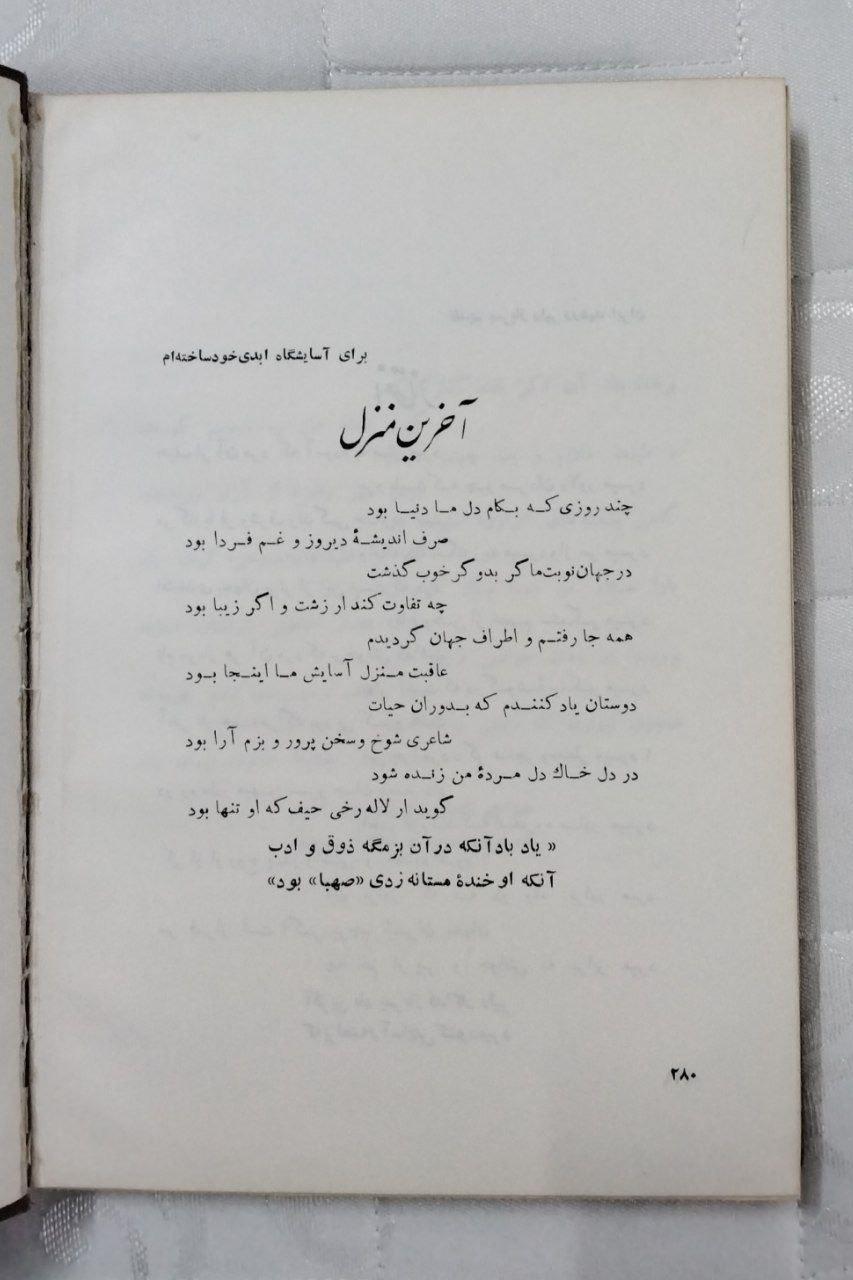 برای آسایشگاه ابدی خود ساخته‌ام
آخرین منزل
چند روزی که بکام دل ما دنیا بود
صرف اندیشهٔ دیروز و غم فردا بود
در جهان نوبت ما گر بدو گر خوب گذشت
چه تفاوت کند ار زشت و اگر زیبا بود
همه جا رفتم و اطراف جهان گردیدم
عاقبت منزل آسایش ما اینجا بود
دوستان یاد کنندم که بدوران حیات
شاعری شوخ و سخن پرور و بزم آرا بود
در دل خاك دل مردهٔ من زنده شود
گوید ار لاله رخی حیف که او تنها بود
« یاد باد آنکه در آن بزمگه ذوق و ادب
آنکه او خندهٔ مستانه زدی «صهبا» بود»
۲۸۰